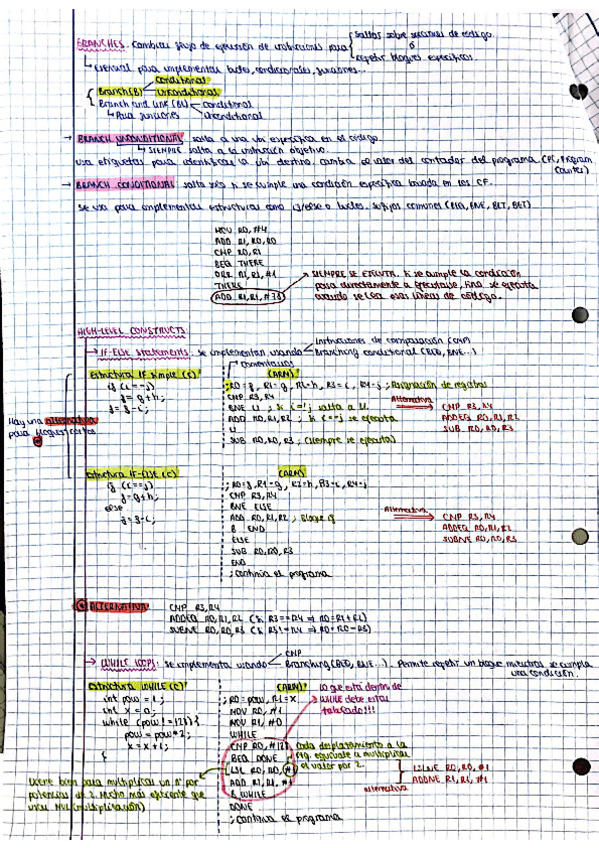 BRANCHES. Cambiar flujo de ejecución de instrucciones para
Saltos sobre secciones de código
ó
repetir bloques específicos.
esencial para implementar bucles, condicionales, funciones...
Branch (B)
Conditional
Unconditional
Branch and link (BL)
conditional
unconditional
Para funciones
→ BRANCH UNCONDITIONAL salta a una ubi específica en el código.
SIEMPRE salta a la instrucción objetivo.
usa etiquetas para identificar la ubi destino, cambia el valor del contador del programa (PC, Program
Counter)
→ BRANCH CONDITIONAL salta sólo si se cumple una condición específica basada en las CF.
Se usa para implementar estructuras como if/else o bucles. Sufijos comunes (BEQ, BNE, BLT, BGT)
MOV R0, #4
ADD R1, R0, R0
CMP R0, R1
BEQ THERE
ORR R1, R1, #1
THERE
ADD R1, R1, #78
SIEMPRE SE EJECUTA. Si se cumple la condición
pasa directamente a ejecutarse, sino, se ejecuta
cuando se lea esas líneas de código.
HIGH-LEVEL CONSTRUCTS
→ IF-ELSE statements: se implementan usando
Instrucciones de comparación (CMP)
Branching conditional (BEQ, BNE...)
comentarios
Estructura IF simple (C)
if (i==j)
f = g+h;
f = f-i;
(ARM)
; R0=f, R1=g, R2=h, R3=i, R4=j ; Asignación de registros
CMP R3, R4
BNE L1 ; Si i!=j salta a L1
ADD R0, R1, R2 ; Si i==j se ejecuta
L1
SUB R0, R0, R3 ; (siempre se ejecuta)
Alternativa
CMP R3, R4
ADDEQ R0, R1, R2
SUB R0, R0, R3
Hay una alternativa
para bloques cortos
Estructura IF-ELSE (C)
if (i==j)
f = g+h;
else
f = f-i;
(ARM)
; R0=f, R1=g, R2=h, R3=i, R4=j
CMP R3, R4
BNE ELSE
ADD R0, R1, R2 ; Bloque if
B END
ELSE
SUB R0, R0, R3
END
; continúa el programa
Alternativa
CMP R3, R4
ADDEQ R0, R1, R2
SUBNE R0, R0, R3
ALTERNATIVA
CMP R3, R4
ADDEQ R0, R1, R2 (Si R3==R4 ⇒ R0=R1+R2)
SUBNE R0, R0, R3 (Si R3!=R4 ⇒ R0=R0-R3)
→ WHILE LOOPS: se implementa usando
CMP
Branching (BEQ, BNE...). Permite repetir un bloque mientras se cumpla
una condición.
Estructura WHILE (C)
int pow = 1;
int x = 0;
while (pow != 128) {
pow = pow*2;
x = x+1;
}
(ARM)
; R0=pow, R1=x
MOV R0, #1
MOV R1, #0
WHILE
CMP R0, #128
BEQ DONE
LSL R0, R0, #1
ADD R1, R1, #1
B WHILE
DONE
; continua el programa
lo que está dentro de
WHILE debe estar
tabeado!!!
Cada desplazamiento a la
izq. equivale a multiplicar
el valor por 2.
LSLNE R0, R0, #1
ADDNE R1, R1, #1
alternativa
Viene bien para multiplicar un nº por
potencias de 2. Mucho más eficiente que
usar MUL (multiplicación)